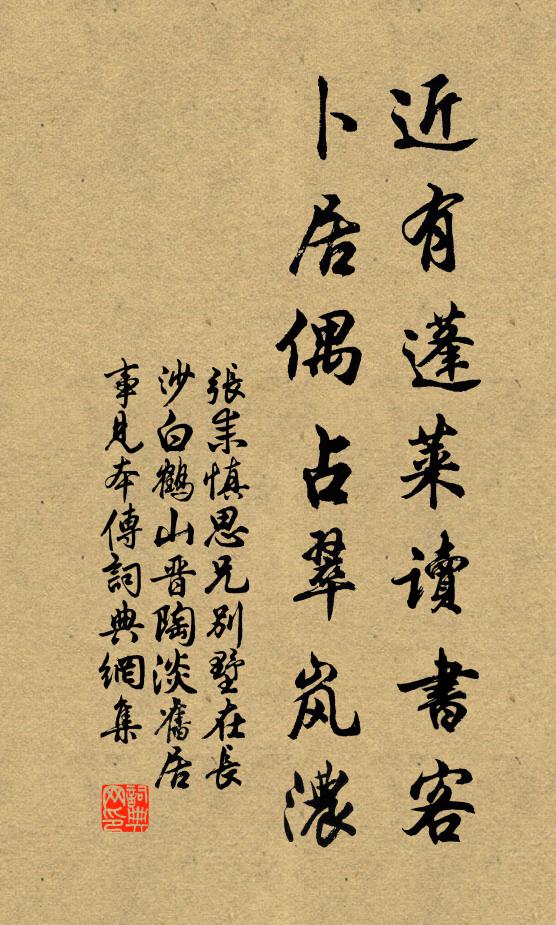 近有蓬萊讀書客
卜居偶占翠岚濃
張耒慎思兄別墅在長
沙白鶴山晋陶淡舊居
事見本傳詞典網集
詞典
网印